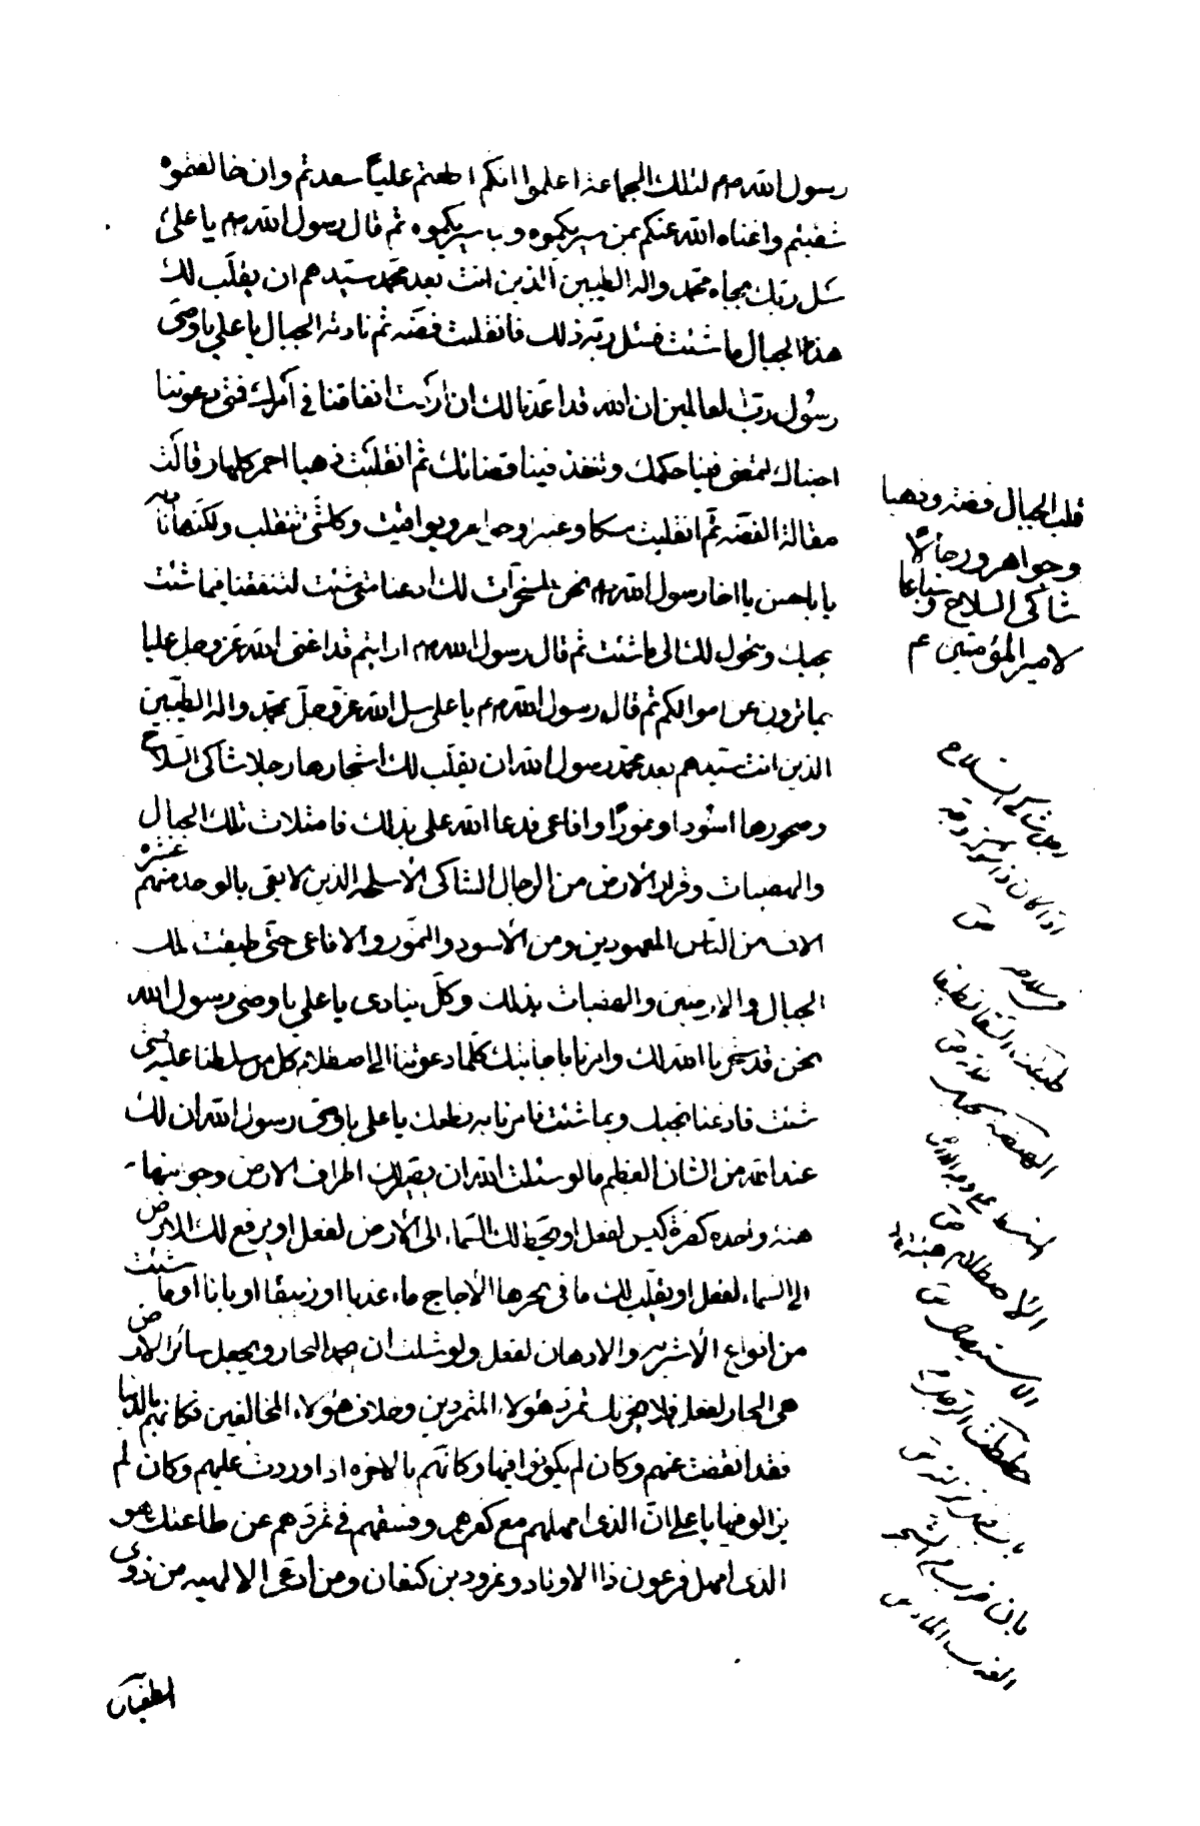 رسول الله صم لتلك الجماعة اعلموا انكم اطعتم علياً سعدتم وان خالفتموه
شقيتم واغناه الله عنكم بمن سيريكموه وبما سيريكموه ثم قال رسول الله صم يا علي
سَل ربك بجاه محمد واله الطيبين الذين انت بعد محمد سيدهم ان يقلّب لك
هذه الجبال ما شئت فسئل ربه ذلك فانقلبت فضّه ثم نادته الجبال يا علي يا وصيّ
رسول ربّ العالمين ان الله قد اعدّنا لك ان اردت انفاقنا في امرك فمتى دعوتنا
اجبناك لتمضى فينا حكمك وتنفذ فينا قضائك ثم انقلبت ذهبا احمر كلها وقالت
مقالة الفضّه ثم انقلبت مسكا وعنبرا وجواهر ويواقيت وكل شئ تنقلب ولكنها نادته
يا ابا حسن يا اخا رسول الله صم نحن المسخرات لك ادعنا متى شئت لتنفقنا فيما شئت
نجبك ونتحول لك الى ما شئت ثم قال رسول الله صم ارايتم قد اغنى الله عز وجل عليا
بما ترون عن اموالكم ثم قال رسول الله صم يا علي سل الله عز وجلّ بمحمد واله الطيّبين
الذين انت سيدهم بعد محمد رسول الله ان يقلّب لك اشجارها رجلا شاكى السّلاح
وصخورها اسودا ونمورًا وافاعى فدعا الله على بذلك فامتلات تلك الجبال
والهضبات وقرار الأرض من الرجال الشاكى الأسلحه الذين لا يفى بالواحد منهم عشره
الاف من الناس المعهودين ومن الأسود والنمور والافاعى حتّى طبقت تلك
الجبال والارضين والهضبات بذلك وكلّ ينادى يا على يا وصى رسول الله
نحن قد سخرنا الله لك وامرنا باجابتك كلّما دعوتنا الى اصطلام كل من سلطتنا عليه متى
شئت فادعنا نجبك وبما شئت فامرنا به نطعك يا على يا وصى رسول الله ان لك
عند الله من الشان العظيم ما لو سئلت الله ان يصيّر لك اطراف الارض وجوانبها
هيئة واحده كصرة كيس لفعل او يحط لك السّماء الى الأرض لفعل او يرفع لك الارض
الى السماء لفعل او يقلّب لك ما فى بحرها الأجاج ماء عذبا او زيبقا او بانا او ما شئت
من انواع الأشربه والادهان لفعل ولو شئت ان يجمد البحار ويجعل سائر الارض
هى البحار لفعل فلا يحزنك تمرّد هؤلاء المتمردين وخلاف هؤلاء المخالفين فكانهم بالدنيا
فقد انقضت عنهم وكان لم يكونوا فيها وكانّهم بالاخره اذا وردت عليهم وكان لم
يزالوا فيها يا على انّ الذى امهلهم مع كفرهم وفسقهم فى تمرّدهم عن طاعتك هو
الذى امهل فرعون ذا الاوتاد ونمرود بن كنعان ومن ادّعى الالهيه من ذوى
الطغيان
قلب الجبال فضة وذهبا
وجواهر ورجالًا
شاكى السلاح وسباعا
لامير المؤمنين عم
رجل شاكى السلاح
اذا كان ذا شوكة وحدة
ص
فى سلاحه